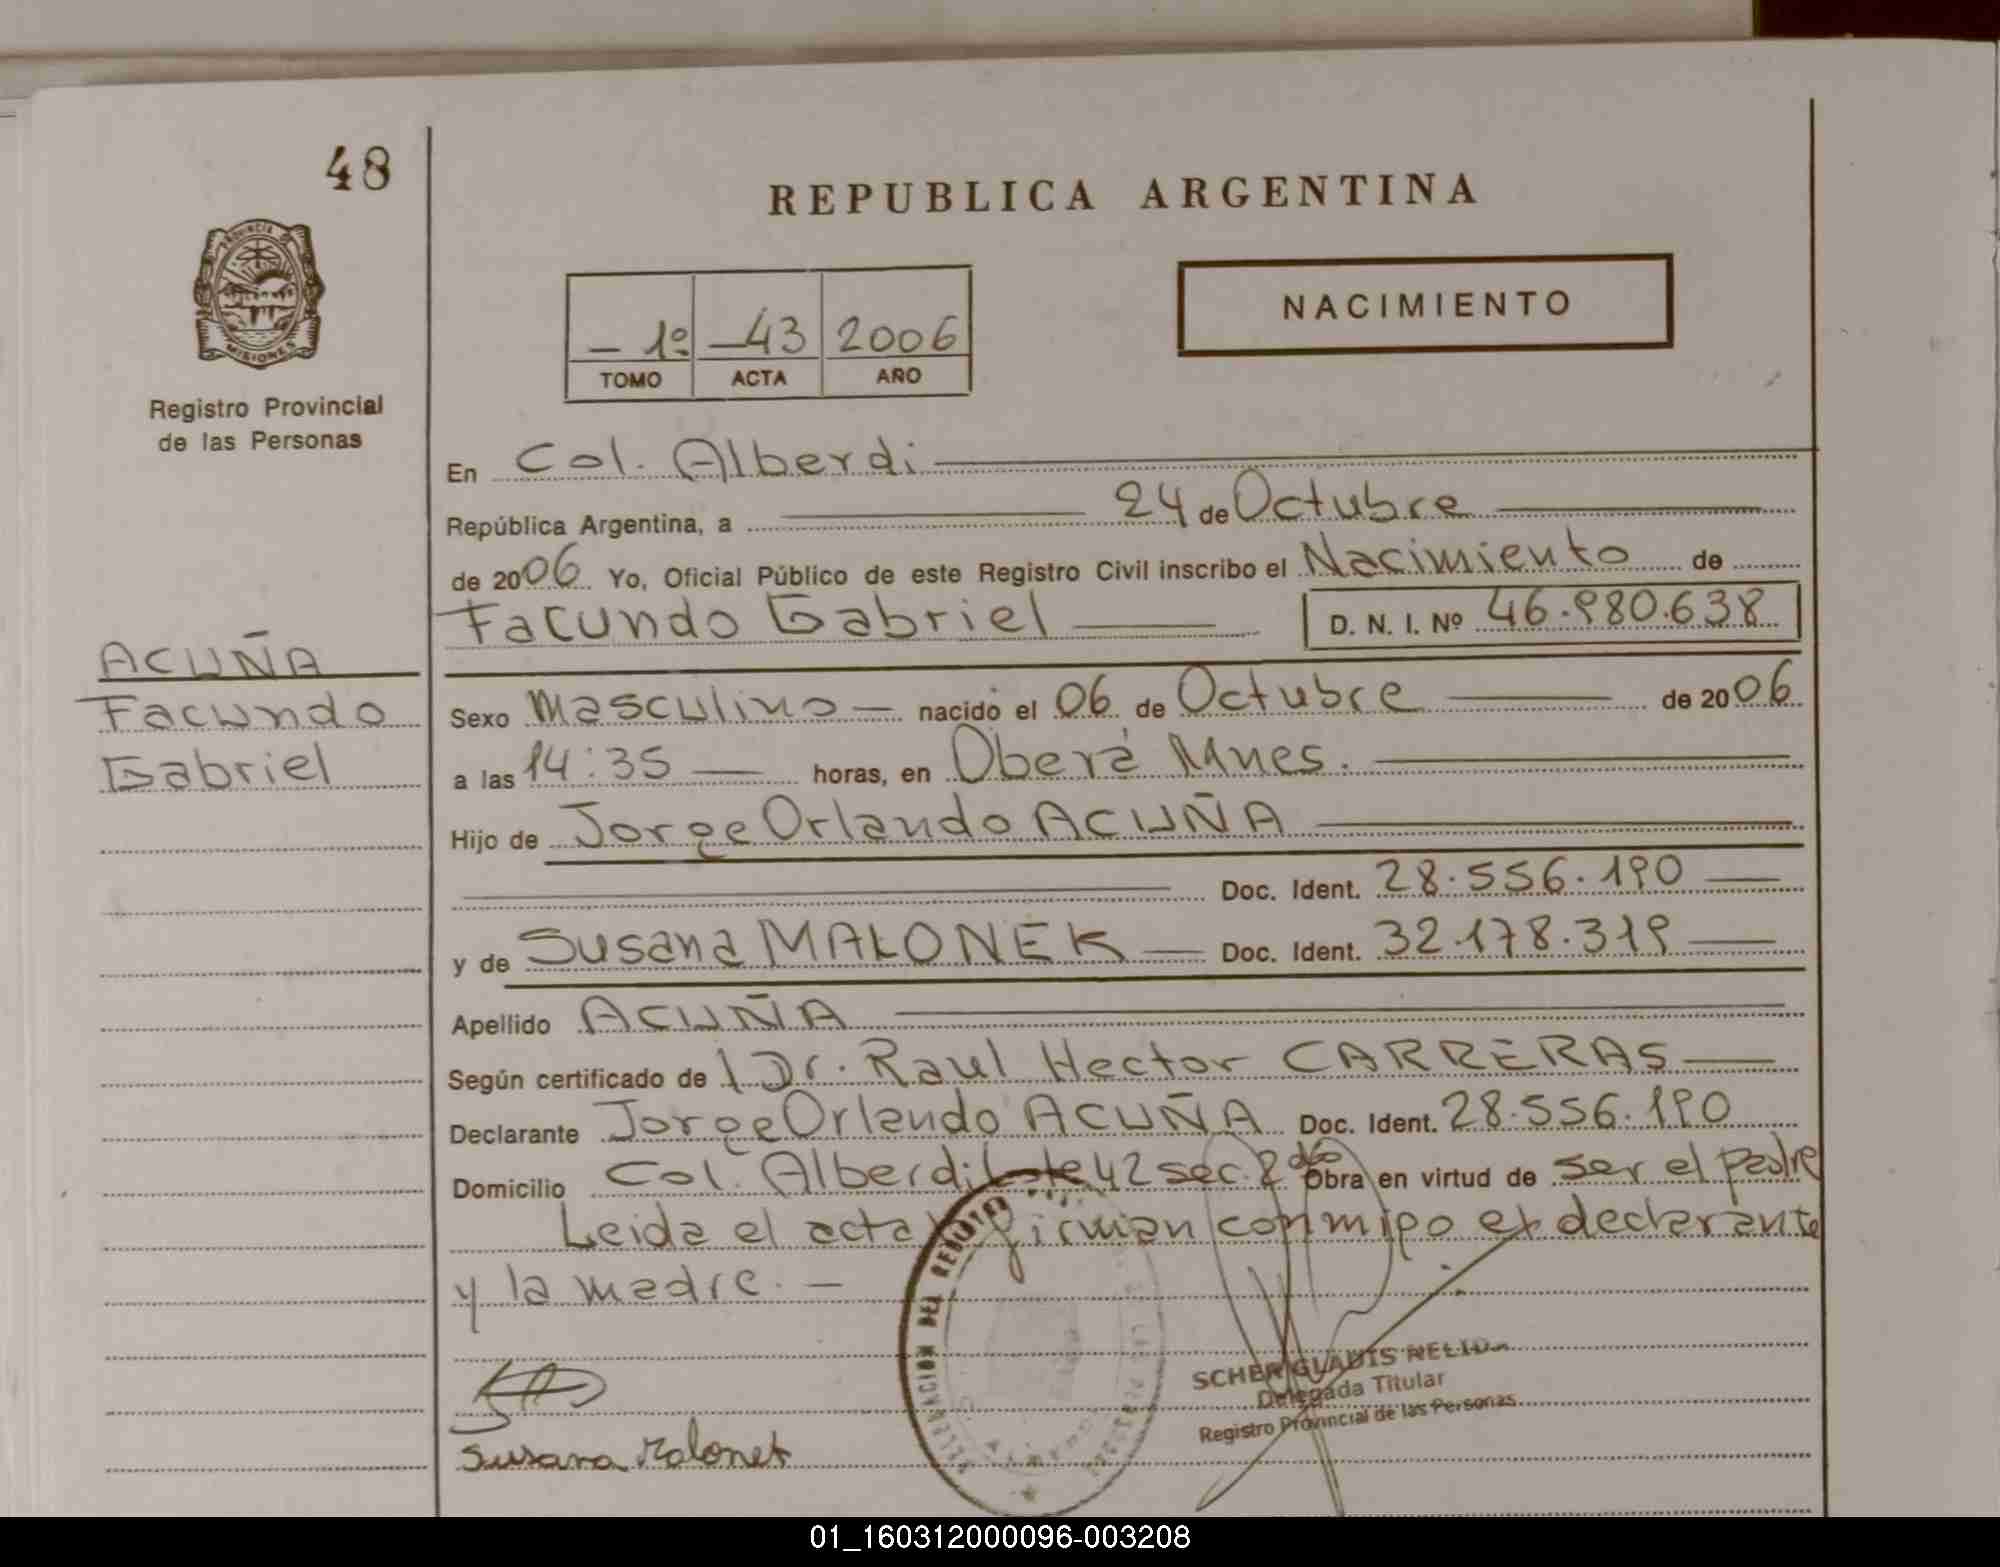 48
REPUBLICA ARGENTINA
PROVINCIA DE
MISIONES
Registro Provincial
de las Personas
NACIMIENTO
- 1º - 43 2006
TOMO ACTA AÑO
En Col. Alberdi
República Argentina, a 24 de Octubre
de 2006 Yo, Oficial Público de este Registro Civil inscribo el Nacimiento de
Facundo Gabriel D. N. I. Nº 46.980.638
ACUÑA
Facundo
Gabriel
Sexo Masculino — nacido el 06 de Octubre de 2006
a las 14:35 — horas, en Oberá Mnes.
Hijo de Jorge Orlando ACUÑA
Doc. Ident. 28.556.190
y de Susana MALONEK — Doc. Ident. 32.178.319
Apellido ACUÑA
Según certificado de Dr. Raul Hector CARRERAS
Declarante Jorge Orlando ACUÑA Doc. Ident. 28.556.190
Domicilio Col. Alberdi Lote 42 sec. 2da Obra en virtud de ser el padre
Leida el acta firman conmigo el declarante
y la madre. —
SCHER GLADIS NELIDA
Delegada Titular
Registro Provincial de las Personas
Susana Malonek
01_160312000096-003208